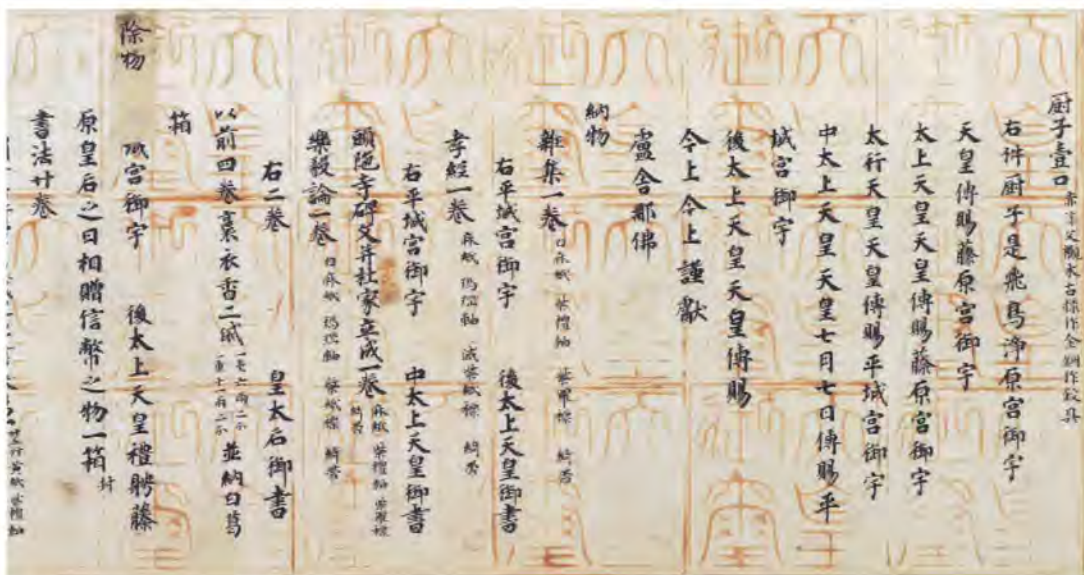 厨子壹口 赤漆文欟木古樣作金銅作鉸具
右件厨子是飛鳥淨原宮御宇
天皇傳賜藤原宮御宇
太上天皇天皇傳賜藤原宮御宇
太行天皇天皇傳賜平城宮御宇
中太上天皇天皇七月七日傳賜平
城宮御宇
後太上天皇天皇傳賜
今上今上謹獻
盧舍那佛
納物
雜集一卷 白麻紙 紫檀軸 紫羅褾 綺帶
右平城宮御宇 後太上天皇御書
孝經一卷 麻紙 瑪瑙軸 滅紫紙褾 綺帶
右平城宮御宇 中太上天皇御書
頭陁寺碑文并杜家立成一卷 麻紙 紫檀軸 紫羅褾 綺帶
樂毅論一卷 白麻紙 瑪瑙軸 紫紙褾 綺帶
右二卷 皇太后御書
以前四卷裹衣香二袋 一重六兩二分 一重七兩二分 並納白葛
箱
除物
城宮御宇 後太上天皇禮聘藤
原皇后之日相贈信幣之物一箱 封
書法廿卷
黃紙 紫檀軸